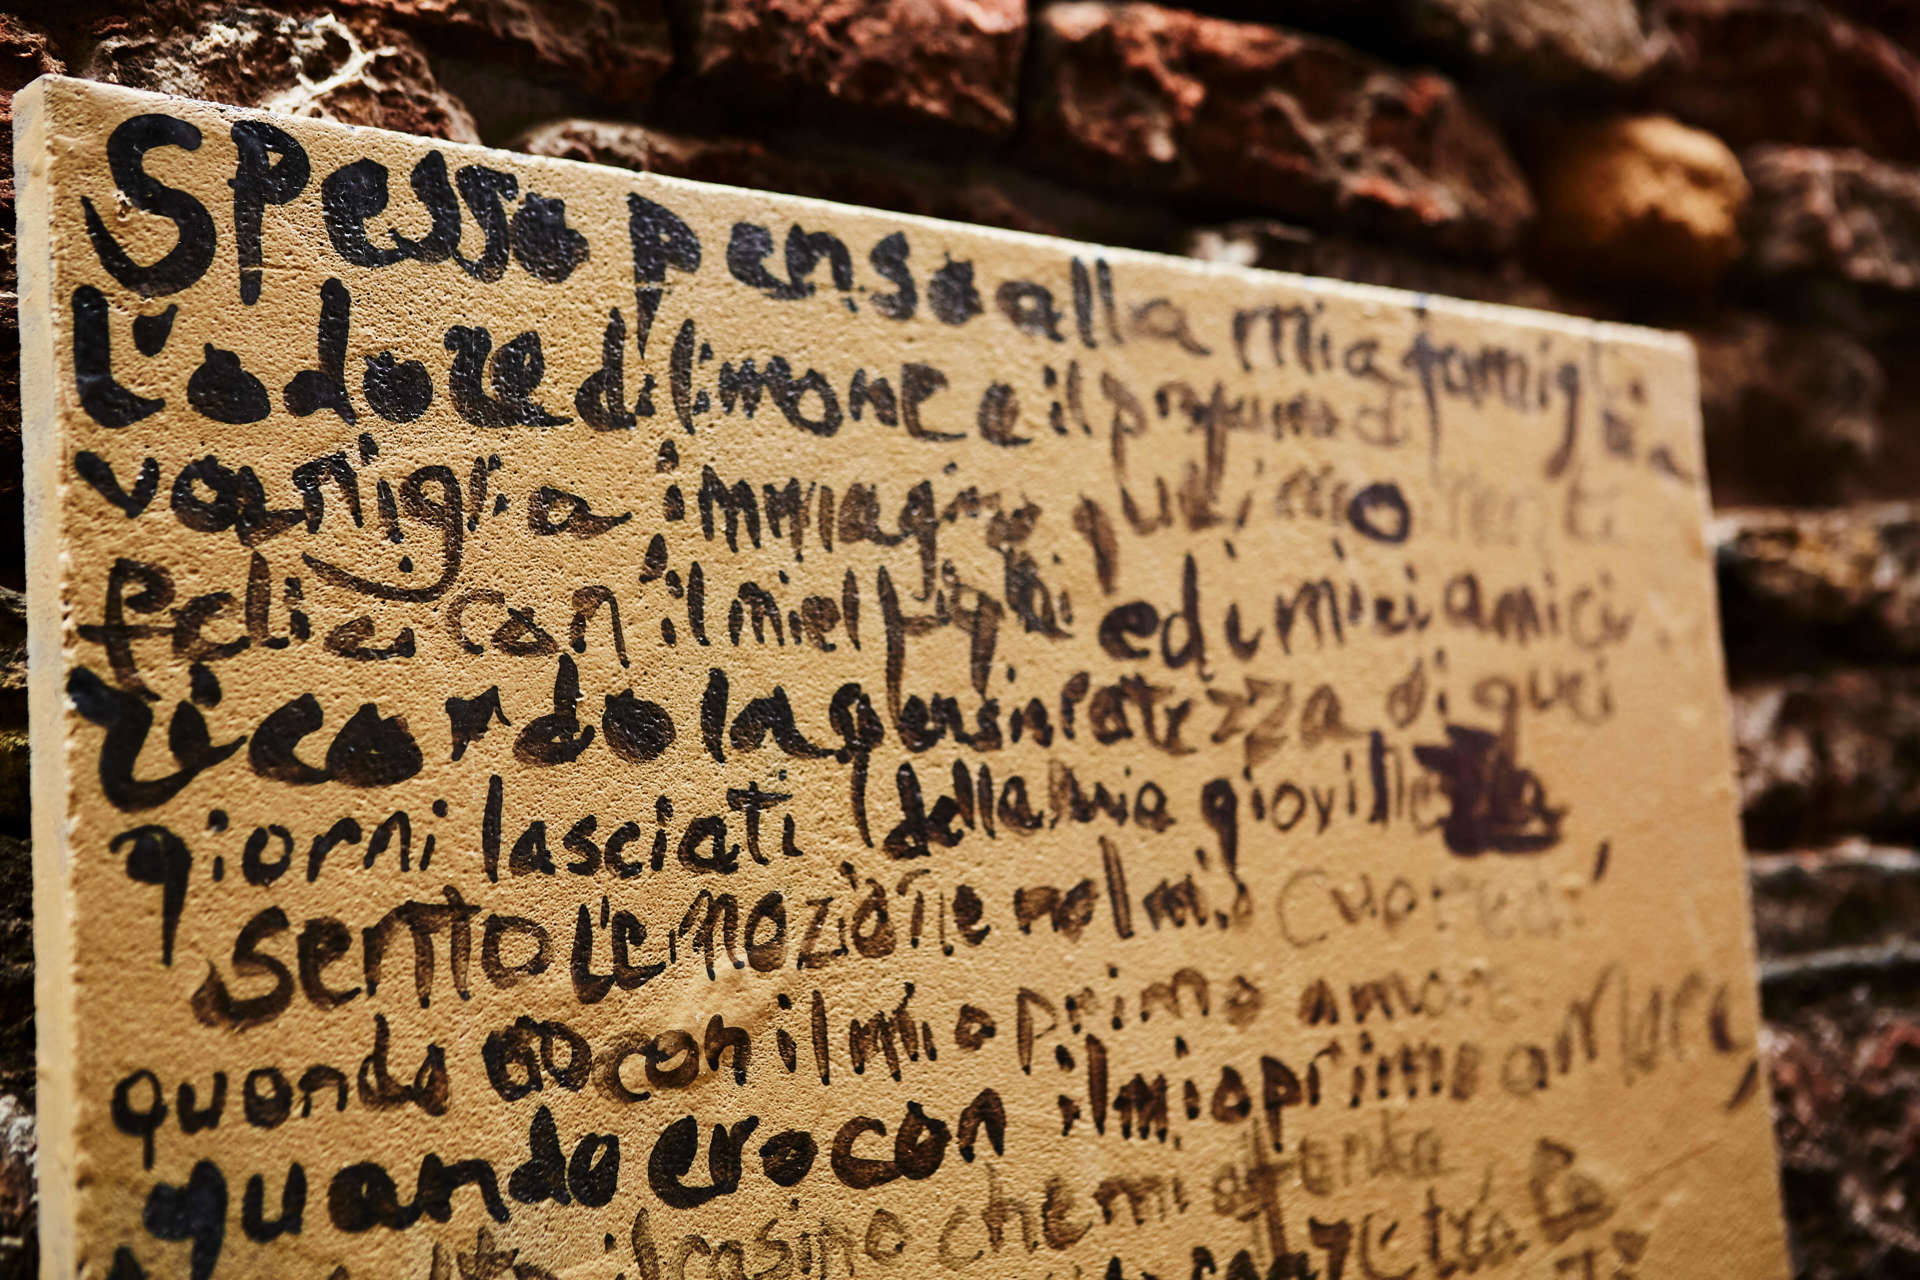 Spesso penso alla mia famiglia
L'odore di limone e il profumo di
vaniglia immagino
felici con il miei figli ed i miei amici
ricordo la spensieratezza di quei
giorni lasciati della mia
sento l'emozione nel mio cuore
quando ero con il mio primo amore
quando ero con il mio primo amore
il casino che mi